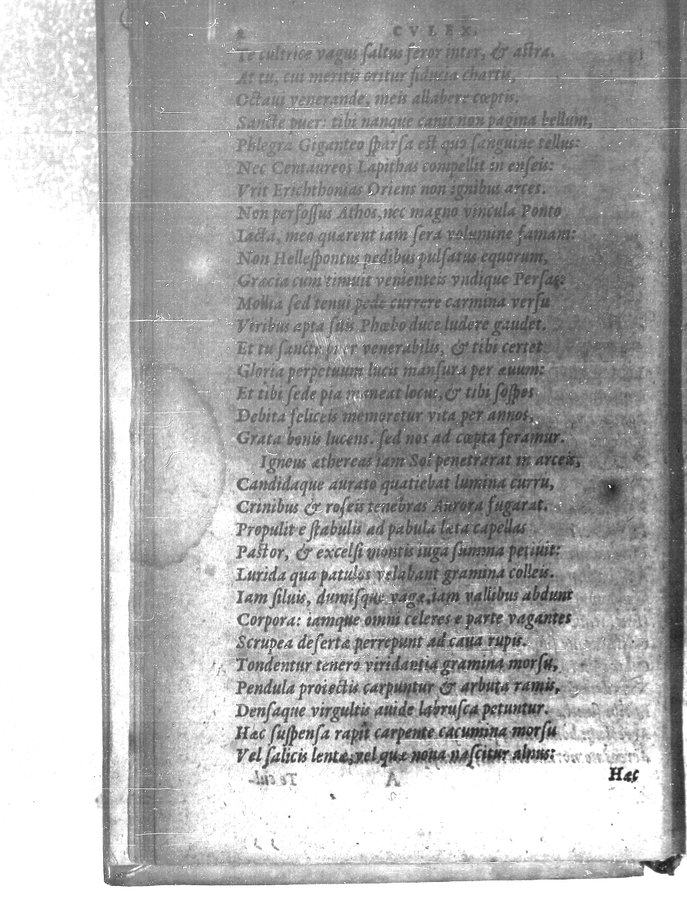 2 CVLEX.
Te cultrice vagus saltus feror inter, & astra.
At tu, cui meritis oritur fiducia chartis,
Octaui venerande, meis allabere cœptis.
Sancte puer: tibi nanque canit non pagina bellum,
Phlegra Giganteo sparsa est quo sanguine tellus:
Nec Centaureos Lapithas compellit in enseis:
Vrit Erichthonias Oriens non ignibus arces.
Non perfossus Athos, nec magno vincula Ponto
Iacta, meo quærent iam sera volumine famam:
Non Hellespontus pedibus pulsatus equorum,
Græcia cum timuit venienteis vndique Persas:
Mollia sed tenui pede currere carmina versu
Viribus apta suis Phœbo duce ludere gaudet.
Et tu sancte puer venerabilis, & tibi certet
Gloria perpetuum lucis mansura per æuum:
Et tibi sede pia maneat locus, & tibi sospes
Debita feliceis memoretur vita per annos,
Grata bonis lucens. sed nos ad cœpta feramur.
Igneus æthereas iam Sol penetrarat in arceis,
Candidaque aurato quatiebat lumina curru,
Crinibus & roseis tenebras Aurora fugarat.
Propulit e stabulis ad pabula læta capellas
Pastor, & excelsi montis iuga summa petiuit:
Lurida qua patulos velabant gramina colleis.
Iam siluis, dumisque vagæ, iam vallibus abdunt
Corpora: iamque omni celeres e parte vagantes
Scrupea desertæ perrepunt ad caua rupis.
Tondentur tenero viridantia gramina morsu,
Pendula proiectis carpuntur & arbuta ramis,
Densaque virgultis auide labrusca petuntur.
Hæc suspensa rapit carpente cacumina morsu
Vel salicis lentæ, vel quæ noua nascitur alnus:
Hæc